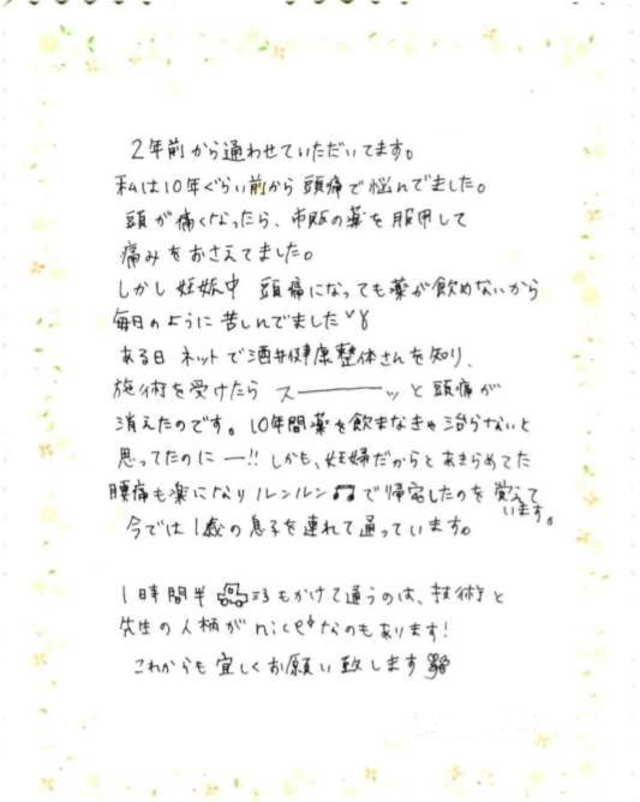 2年前から通わせていただいてます。
私は10年ぐらい前から頭痛で悩んでました。
頭が痛くなったら、市販の薬を服用して
痛みをおさえてました。
しかし妊娠中 頭痛になっても薬が飲めないから
毎日のように苦しんでました
ある日 ネットで酒井健康整体さんを知り、
施術を受けたら スーーーーッと頭痛が
消えたのです。10年間薬を飲まなきゃ治らないと
思ってたのにー!! しかも、妊婦だからとあきらめてた
腰痛も楽になりルンルン♫で帰宅したのを覚えて
います。
今では1歳の息子を連れて通っています。
1時間半もかけて通うのは、技術と
先生の人柄がniceなのもあります!
これからも宜しくお願い致します